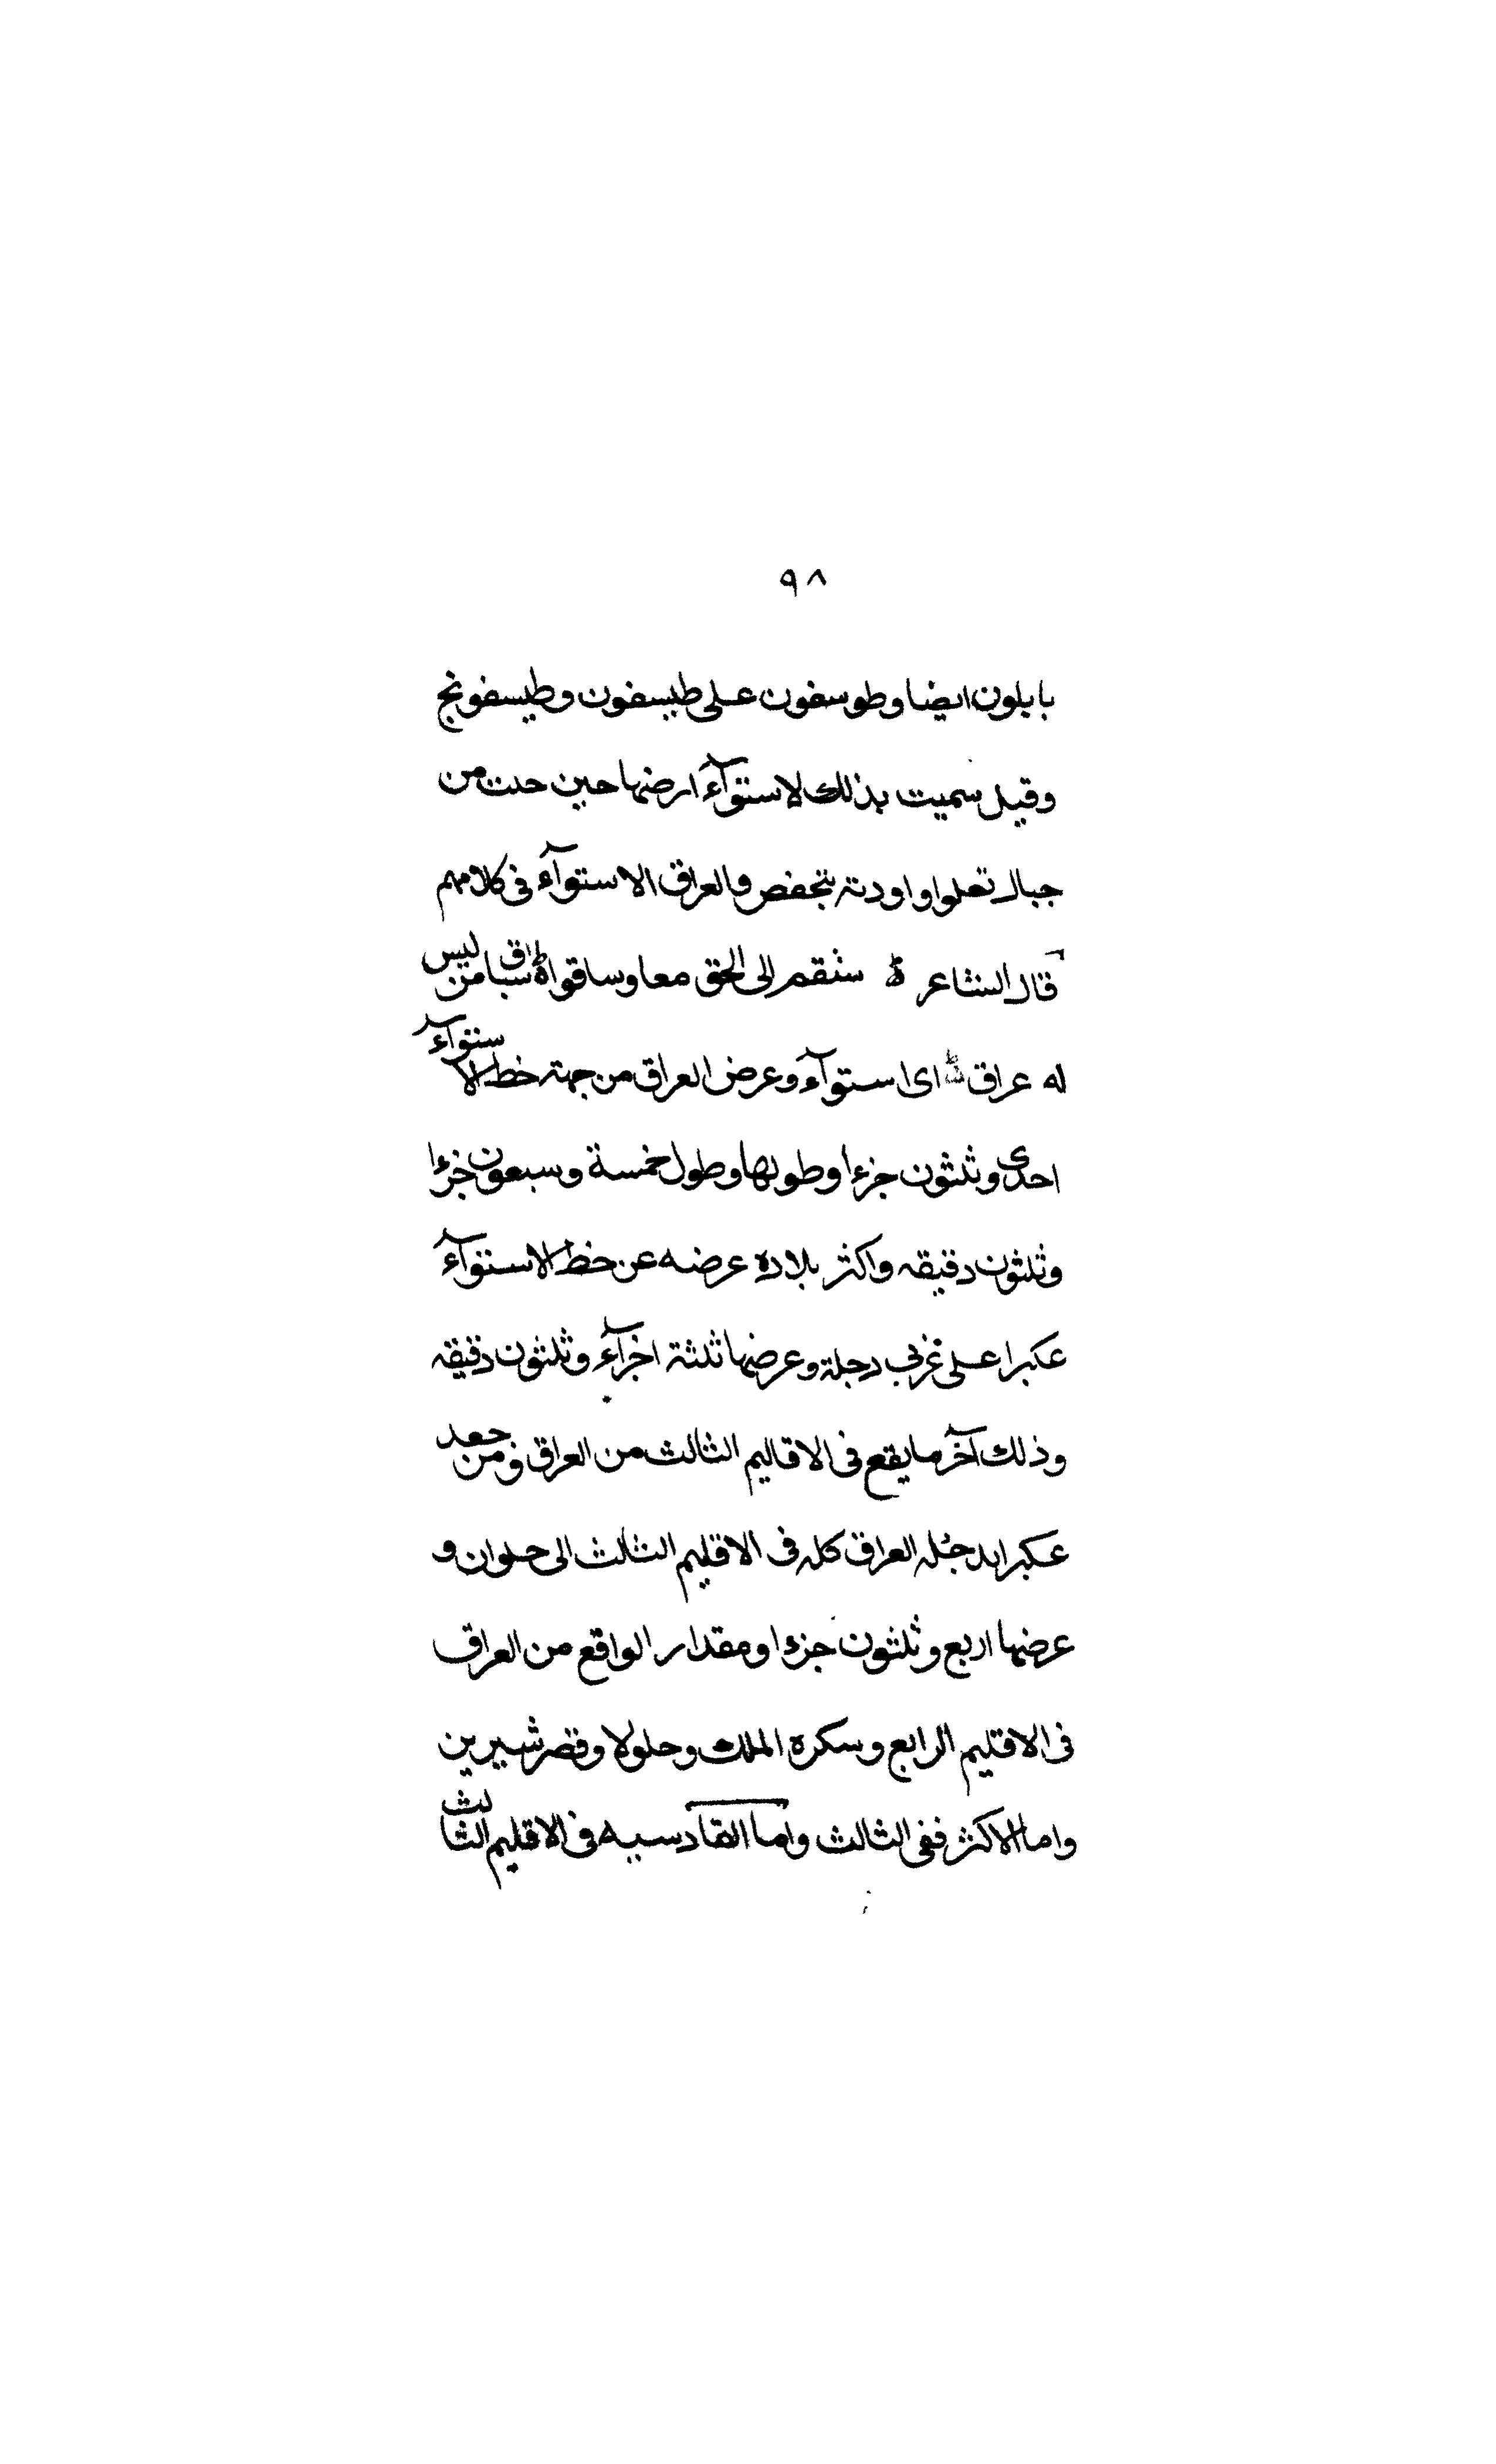 ٩٨
بابلون ايضا وطوسفون على طيسفون وطيسفونج
وقيل سميت بذلك لاستوآء ارضها حين خلت من
جبال تعلوا واودية تنخفض والعراق الاستوآء فى كلامهم
قال الشاعر سقتم الى الحق معا وساقوا سباق من ليس
له عراق اى استوآء وعرض العراق من جهة خط الاستوآء
احدى وثلثون جزءا وطولها وطول خمسة وسبعون جزءا
وثلثون دقيقه واكثر بلاده عرضه عن خط الاستوآء
عكبرا على غربى دجلة وعرضها ثلثة اجزآء وثلثون دقيقه
وذلك آخر ما يقع فى الاقاليم الثالث من العراق ومن بعد
عكبرا يدخله العراق كله فى الاقليم الثالث الى حلوان و
عرضها اربع وثلثون جزءا ومقدار الواقع من العراق
فى الاقليم الرابع وسكره الملك وجلولا وقصر شيرين
واما الاكثر ففى الثالث واما القادسيه فى الاقليم الثالث